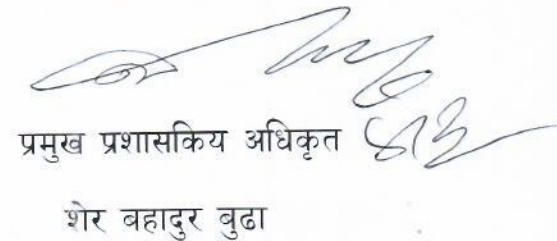 प्रमुख प्रशासकिय अधिकृत
शेर बहादुर बुढा